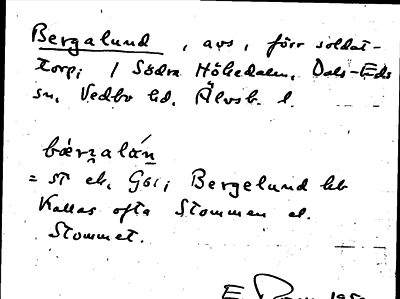 Bergalund, avs, förr soldat-
torp; / Södra Hökedalen, Dals-Eds
sn, Vedbo hd, Älvsb. l.
bærɡalán
= st ek. GSi; Bergelund hb
Kallas ofta Stommen el.
Stommet.
E.